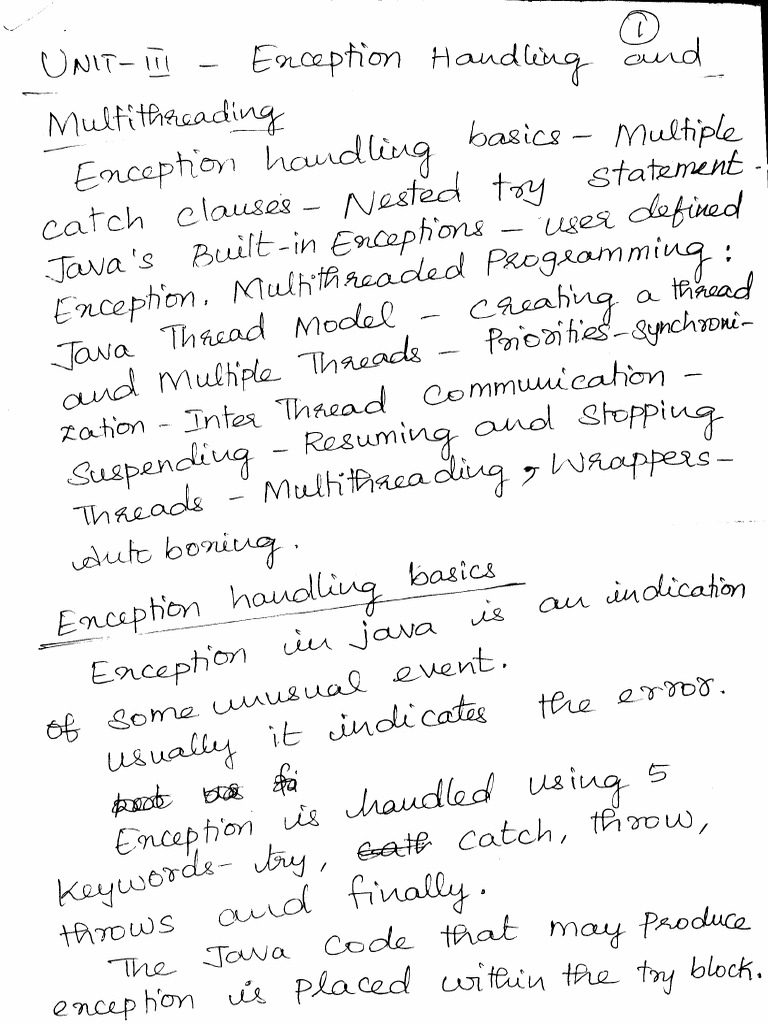 1
UNIT-III - Exception Handling and
Multithreading
Exception handling basics - Multiple
catch clauses - Nested try statement -
Java's Built-in Exceptions - user defined
Exception. Multithreaded Programming:
Java Thread Model - Creating a thread
and Multiple Threads - Priorities - Synchroni-
zation - Inter Thread Communication -
Suspending - Resuming and Stopping
Threads - Multithreading, Wrappers -
Auto boxing.
Exception handling basics
Exception in java is an indication
of some unusual event.
usually it indicates the error.
Exception is handled using 5
keywords - try, catch, throw,
throws and finally.
The Java code that may produce
exception is placed within the try block.